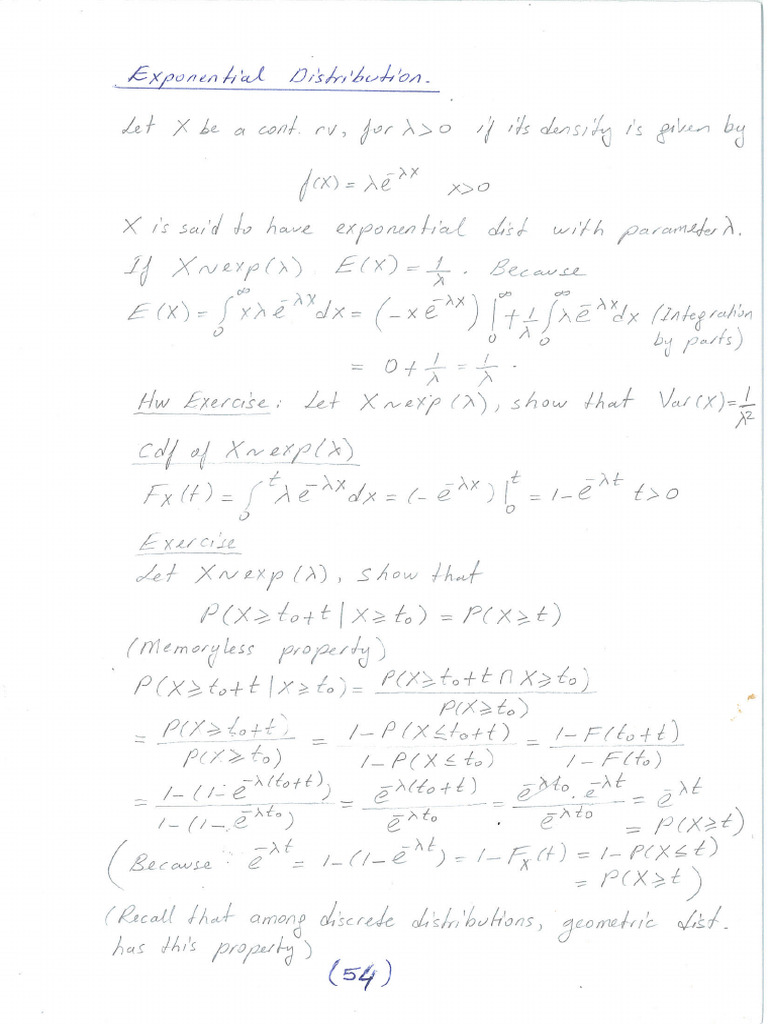 Exponential Distribution.
Let X be a cont. rv, for λ>0 if its density is given by
f(x) = λe^{-λx}   x>0
X is said to have exponential dist with parameter λ.
If X~exp(λ). E(X) = 1/λ. Because
E(X) = ∫_0^∞ xλe^{-λx}dx = (-xe^{-λx})|_0^∞ + 1/λ ∫_0^∞ λe^{-λx}dx (Integration
by parts)
= 0 + 1/λ = 1/λ.
Hw Exercise: Let X~exp(λ), show that Var(X)=1/λ²
Cdf of X~exp(λ)
F_X(t) = ∫_0^t λe^{-λx}dx = (-e^{-λx})|_0^t = 1-e^{-λt} t>0
Exercise
Let X~exp(λ), show that
P(X≥t₀+t | X≥t₀) = P(X≥t)
(Memoryless property)
P(X≥t₀+t | X≥t₀) = P(X≥t₀+t ∩ X≥t₀) / P(X≥t₀)
= P(X≥t₀+t) / P(X≥t₀) = 1-P(X≤t₀+t) / 1-P(X≤t₀) = 1-F(t₀+t) / 1-F(t₀)
= 1-(1-e^{-λ(t₀+t)}) / 1-(1-e^{-λt₀}) = e^{-λ(t₀+t)} / e^{-λt₀} = e^{-λt₀}.e^{-λt} / e^{-λt₀} = e^{-λt}
= P(X≥t)
(Because: e^{-λt} = 1-(1-e^{-λt}) = 1-F_X(t) = 1-P(X≤t)
= P(X≥t))
(Recall that among discrete distributions, geometric dist.
has this property)
(54)